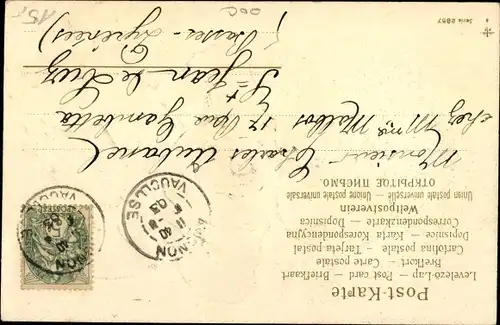 Post-Karte
Levelező-Lap — Post card — Briefkaart
Brefkort — Carte postale
Cartolina postale — Tarjeta postal
Dopisnice — Karta Korespondencyjna
Correspondenzkarte — Dopisnica
Weltpostverein
ОТКРЫТОЕ ПИСЬМО
Union postale universelle Unione postale universale
Monsieur Charles Aubanel
chez Mme Malbos 17 Rue Gambetta
St Jean de Luz
(Basses-Pyrénées)
VAUCLUSE
03
Serie 2857
15,-